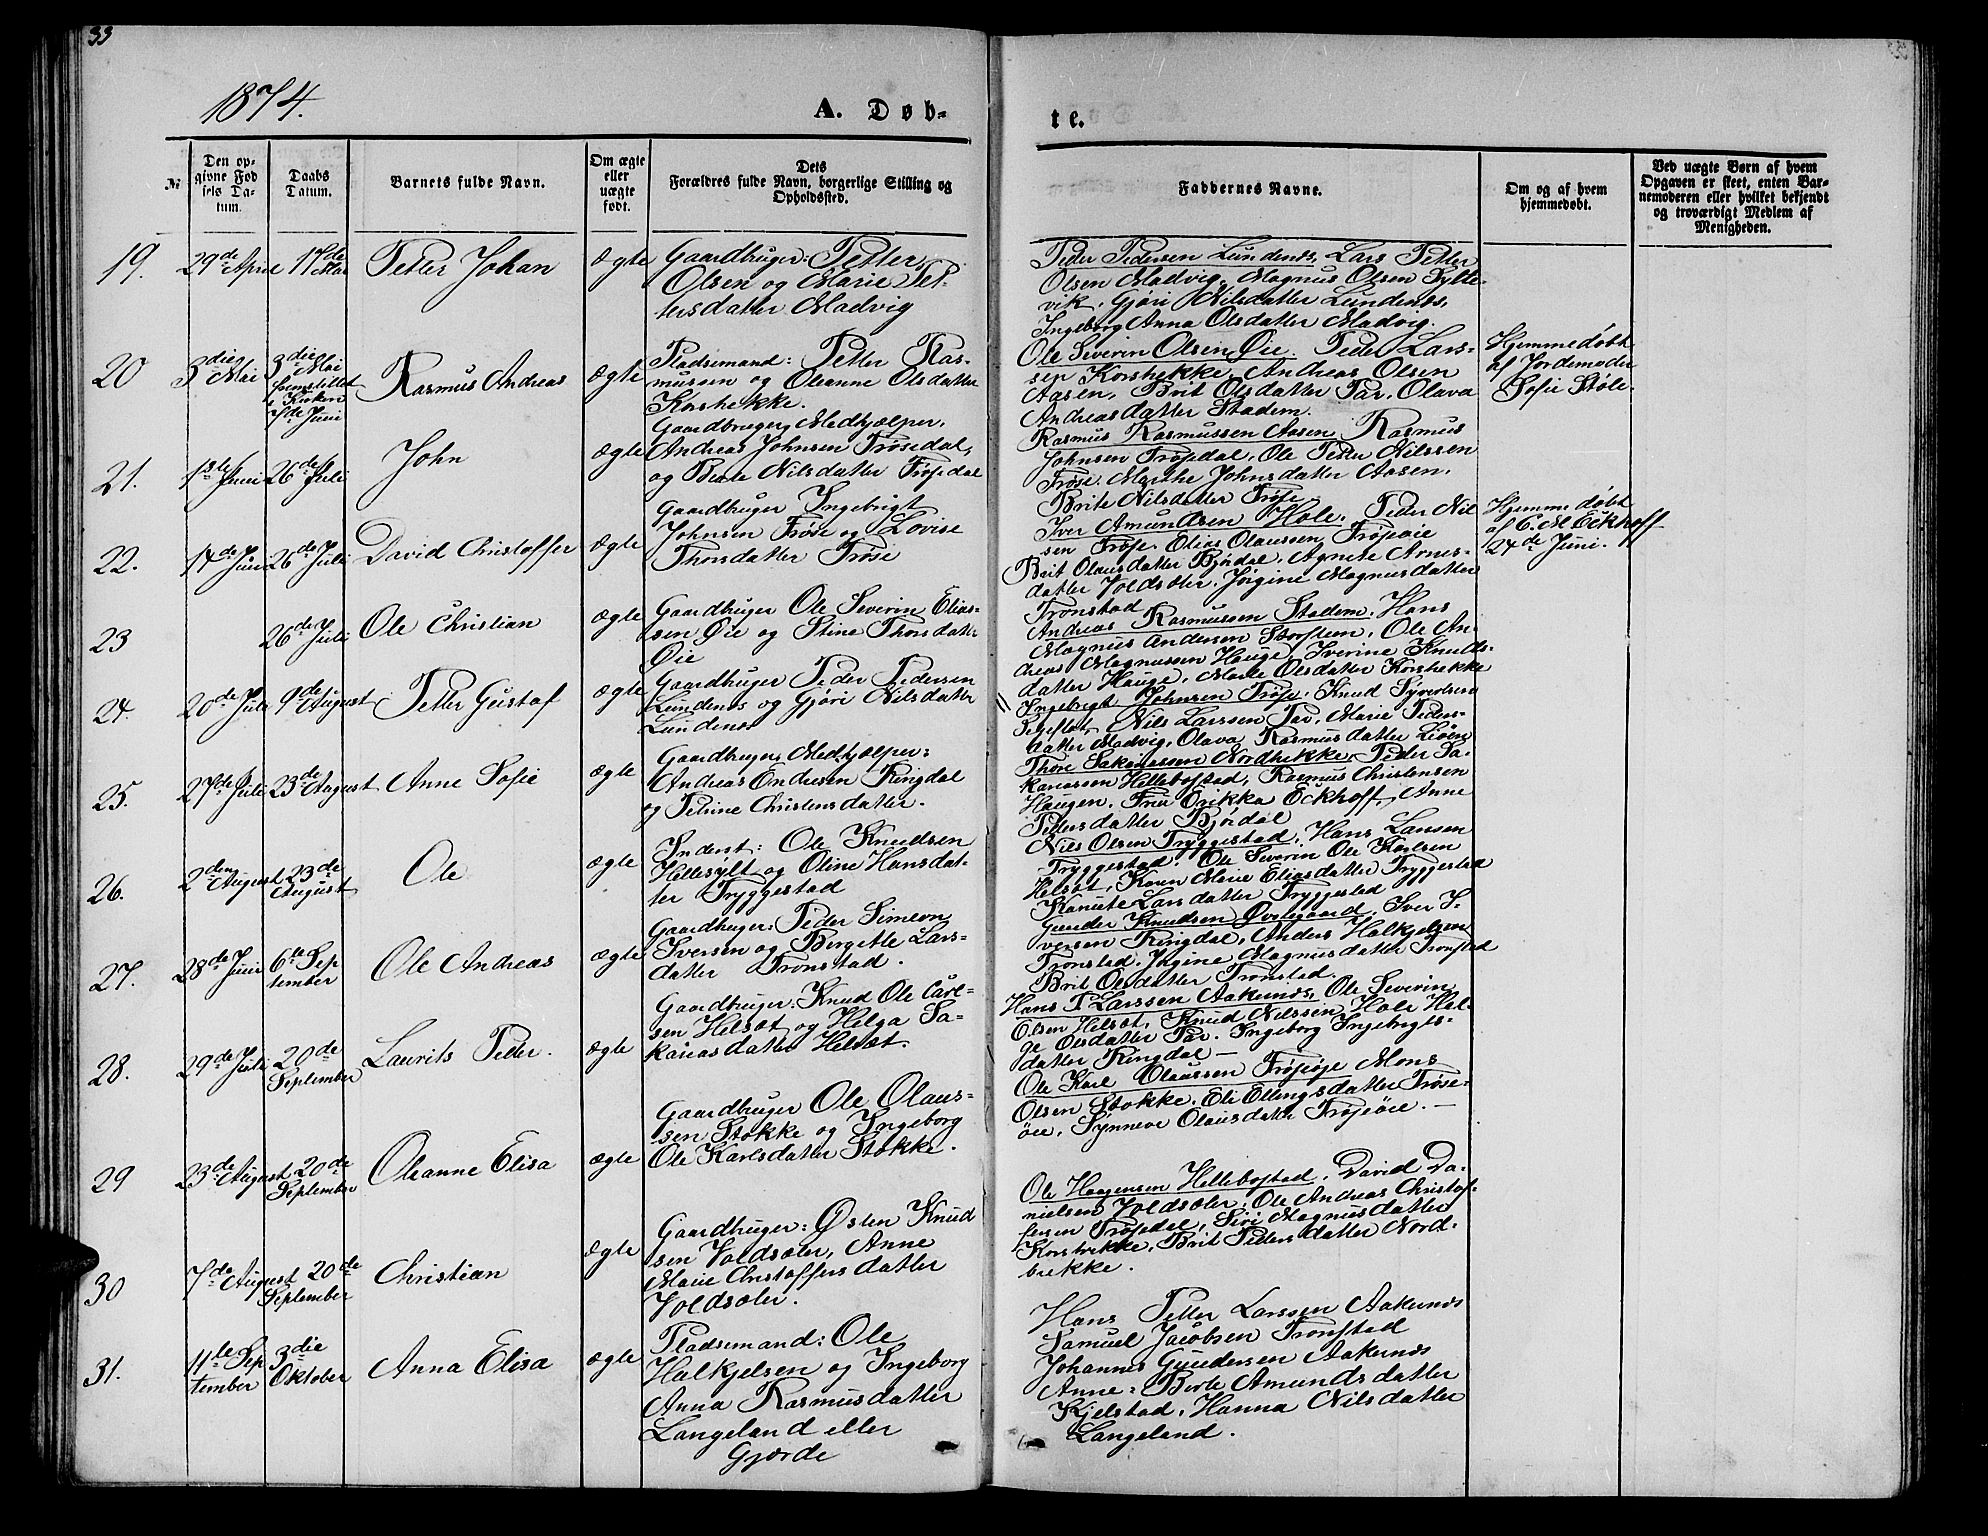 33
1874.
A. Døb-
te.
№
Den op-
givne Fød
sels Da-
tum.
Daabs
Datum.
Barnets fulde Navn.
Om ægte
eller
uægte
født.
Dets
Forældres fulde Navn, borgerlige Stilling og
Opholdssted.
Faddernes Navne.
Om og af hvem
hjemmedøbt.
Ved uægte Børn af hvem
Opgaven er skeet, enten Bar-
nemoderen eller hvilket bekjendt
og troværdigt Medlem af
Menigheden.
19.
29de April
17de Mai
Petter Johan
Ægte
Gaardbruger: Petter
Olsen og Marie Pet-
tersdatter Madvig
Peder Pedersen Lundenes, Lars Petter
Olsen Madvig, Magnus Olsen Sylte-
vik, Gjøri Nilsdatter Lundenes,
Ingeborg Anna Olsdatter Madvig.
20
3die Mai
3die Mai
fremstillet
i Kirken
7de Juni
Rasmus Andreas
Ægte
Pladsemand: Petter Ras-
mussen og Oleanne Olsdatter
Korsbrekke.
Ole Severin Olsen Øie. Peder Lars-
sen Korsbrekke, Andreas Olsen
Aasen, Brit Olsdatter Tar, Olava
Andreasdatter Stadem.
Hjemmedøbt
af Jordemoder
Sofie Støle.
21.
1ste Juni
26de Juli
John
Ægte
Gaardbruger, Medhjælper,
Andreas Johnsen Frøsedal,
og Berte Nilsdatter Frøsedal
Rasmus Rasmussen Aasen, Rasmus
Johnsen Frøsedal, Ole Peder Nilssen
Frøse. Marthe Johnsdatter Aasen.
Brite Nilsdatter Frøse
22.
14de Juni
26de Juli
David Christoffer
Ægte
Gaardbruger Ingebrigt
Johnsen Frøse og Lovise
Thorsdatter Frøse
Iver Amundsen Hole. Peder Nil
sen Frøse. Elias Olaussen Frøseøie
Brit Olausdatter Bjørdal, Agnete Arnes-
datter Voldsæter. Jørgine Magnusdatter
Tronstad
Hjemmedøbt
af C. M Eckhoff
24de Juni.
23
26de Juli
Ole Christian
Ægte
Gaardbruger Ole Severin Elias-
sen Øie og Stina Thorsdatter
Øie
Andreas Rasmussen Stadem, Hans
Magnus Andersen Storstem, Ole An-
dreas Magnussen Hauge, Iverine Knuds-
datter Hauge, Marte Olsdatter Korsbrekke
24.
20de Juli
9de August
Petter Gustaf
Ægte
Gaardbruger Peder Pedersen
Lundenes og Gjøri Nilsdatter
Lundenes
Ingebrigt Johnsen Frøse. Knud Syvertsen
Nils Larssen Tar. Marie Peders-
datter Madvig, Olava Rasmusdatter Liøen
25.
27de Juli
23de August
Anne Sofie
Ægte
Gaardbruger, Medhjælper:
Andreas Endresen Ringdal
og Petrine Christensdatter.
Thore Sakariassen Nordbrekke, Peder Sa-
kariassen Hellebostad, Rasmus Christensen
Haugen. Frue Erikka Eckhoff, Anne
Pedersdatter Bjørdal
26.
2den August
23de August
Ole
Ægte
Inderst: Ole Knudsen
Hellesylt og Oline Hansdat-
ter Tryggestad
Nils Olsen Tryggestad, Hans Larsen
Tryggestad, Ole Severin Ole Karlsen
Helset, Karen Marie Eliasdatter Tryggestad
Kanute Larsdatter Tryggestad
27.
28de Juni
6te Sep
tember
Ole Andreas
Ægte
Gaardbruger: Peder Simeon
Iversen og Bergette Lars-
datter Tronstad.
Gunder Knudsen Øvregaard, Iver I-
versen Ringdal, Anders Halkjelsen
Tronstad. Jørgine Magnusdatter Tronstad
Brit Olsdatter Tronstad.
28.
29de Juli
20de
September
Laurits Peder.
Ægte
Gaardbruger: Knud Ole Carl-
sen Helset og Helga Sa-
kariasdatter Helset.
Hans P Larssen Aaknes, Ole Severin
Olsen Helset, Knud Nilssen Hole, Hel-
ge Olsdatter Tar. Ingeborg Ingebrigts-
datter Ringdal —
29
23de August
20de
September
Oleanne Elisa
Ægte
Gaardbruger Ole Olaus-
sen Stokke og Ingeborg
Ole Karlsdatter Stokke.
Ole Karl Olaussen Frøseøie Mons
Olsen Stokke. Eli Ellingsdatter Frøse-
øie, Synneve Olausdatr Frøseøie. —
30
7de August
20de
September
Christian
Ægte
Gaardbruger: Østen Knud
sen Voldsæter, Anne
Marie Christoffersdatter
Voldsæter.
Ole Haagensen Hellebostad, David Da-
nielsen Voldsæter, Ole Andreas Christof-
fersen Frøsedal, Siri Magnusdatter
Korsbrekke. Brit Pedersdatter Nord-
brekke.
31.
11te Sep
tember
3die
Oktober
Anna Elisa
Ægte
Pladsemand: Ole
Halkjelsen og Ingeborg
Anna Rasmusdatter
Langeland eller
Gjærde
Hans Petter Larssen Aaknes
Samuel Jacobsen Tronstad
Johannes Gundersen Aaknes
Anne-Berte Amundsdatter
Kjelstad, Hanna Nilsdatter
Langeland.